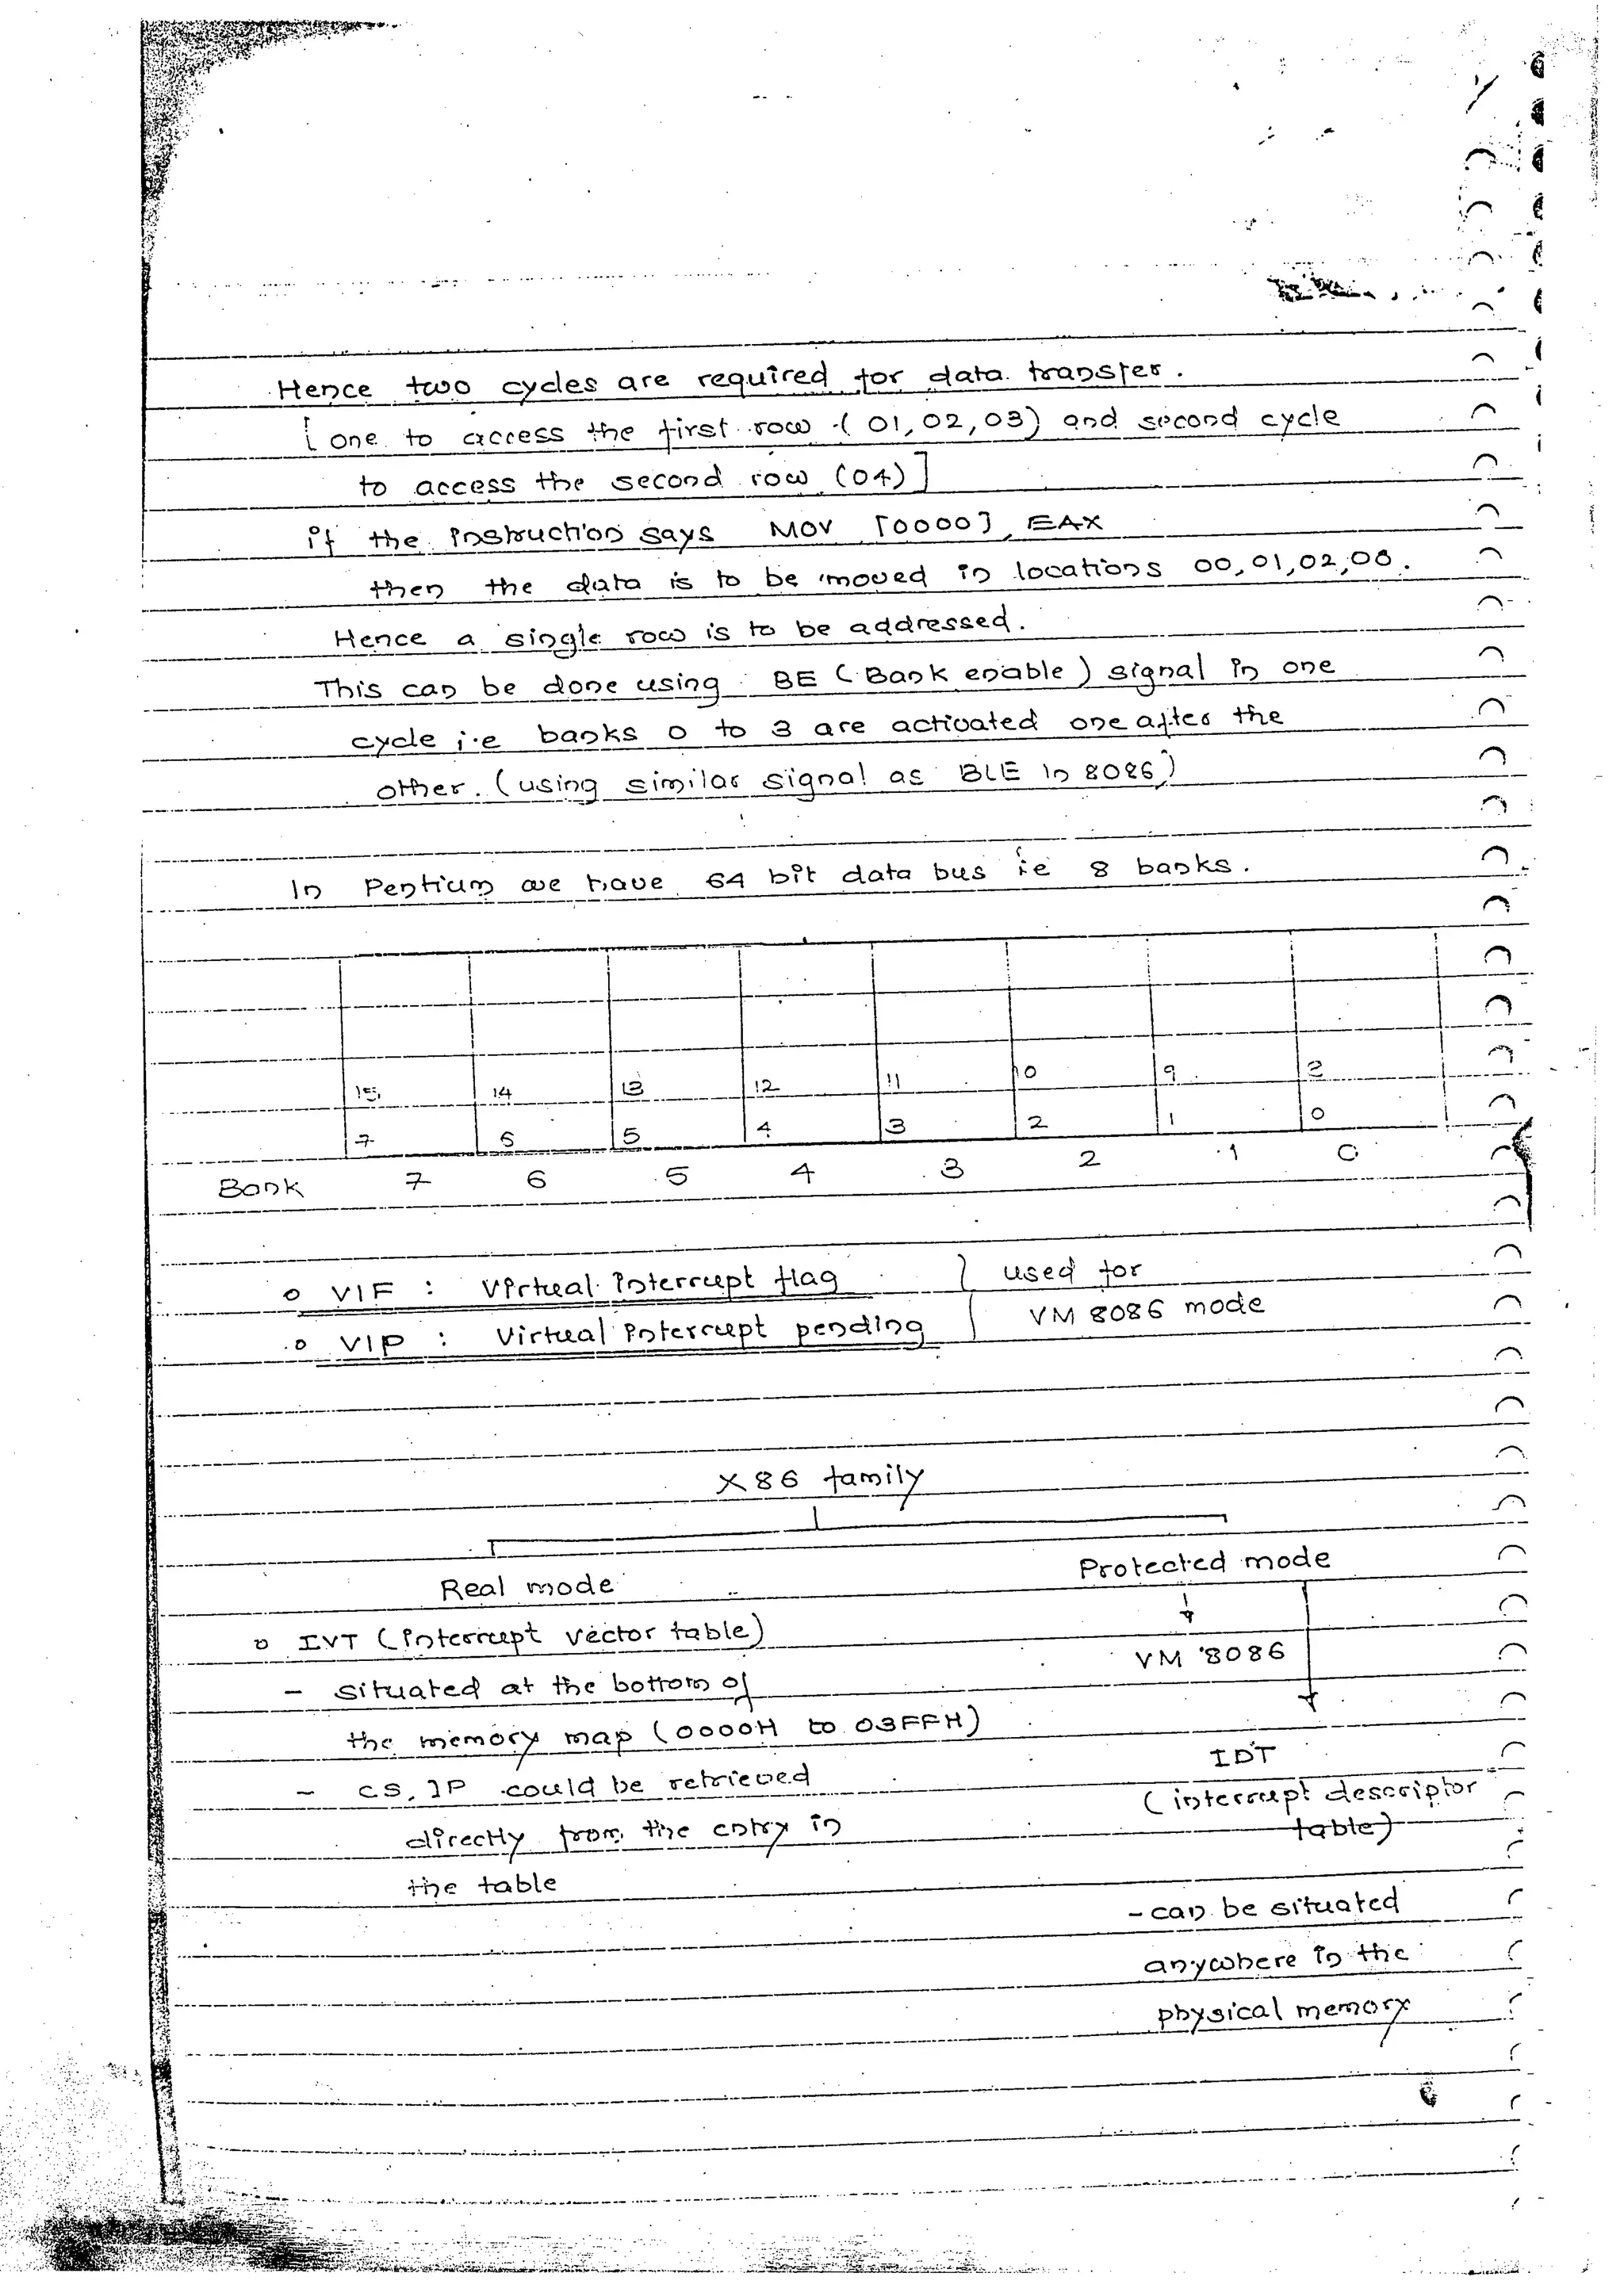 Hence two cycles are required for data transfer.
[one to access the first row (01,02,03) and second cycle
to access the second row (04)]
if the instruction says MOV [0000], EAX
then the data is to be moved in locations 00,01,02,03.
Hence a single row is to be addressed.
This can be done using BE (Bank enable) signal in one
cycle i.e banks 0 to 3 are activated one after the
other. (using similar signal as BLE in 8086)
In Pentium we have 64 bit data bus ie 8 banks.
15 14 13 12 11 10 9
7 5 4 3 2 1 0
Bank 7 6 5 4 3 2 1 0
o VIF : Virtual interrupt flag } used for
o VIP : Virtual interrupt pending } VM 8086 mode
X86 family
Real mode Protected mode
o IVT (interrupt vector table)
VM 8086
- situated at the bottom of
the memory map (0000H to 03FFH)
IDT
- CS, IP could be retrieved
(interrupt descriptor
directly from the entry in
table)
the table
- can be situated
anywhere in the
physical memory